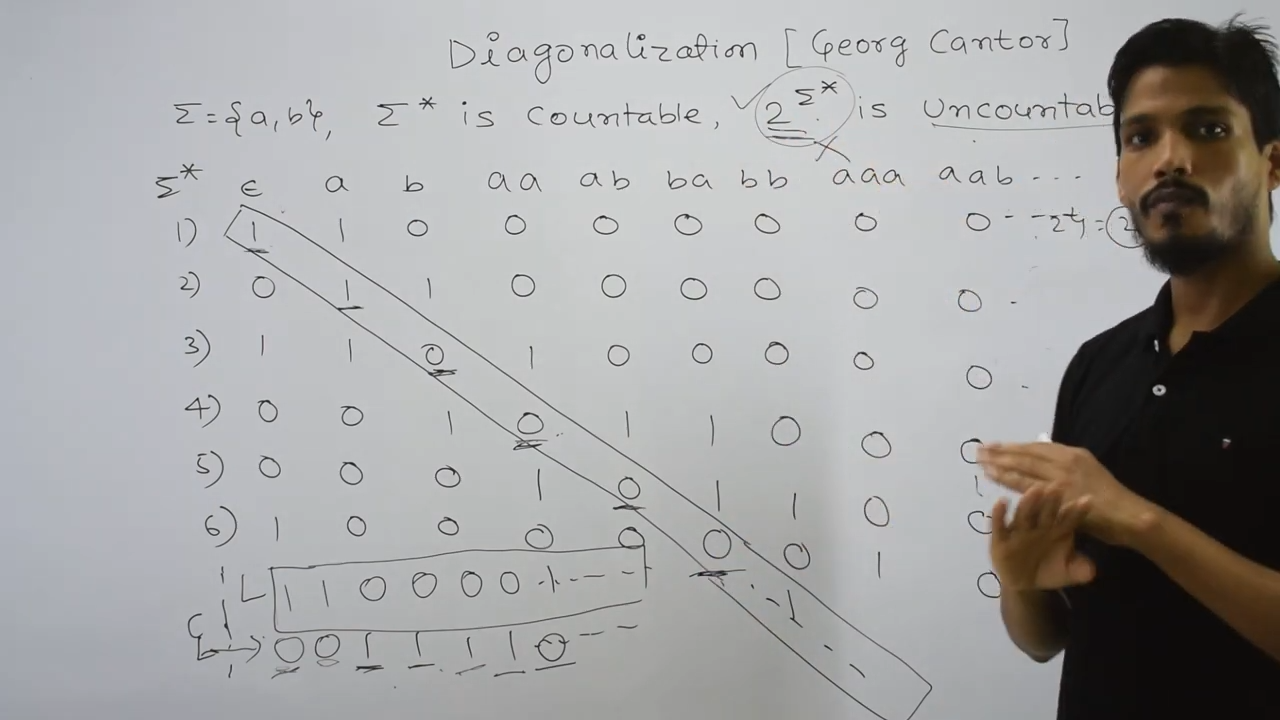 Diagonalization [Georg Cantor]
Σ={a,b}, Σ* is Countable, 2^Σ* is Uncountab
Σ* ϵ a b aa ab ba bb aaa aab ...
1) 1 1 0 0 0 0 0 0 0
2) 0 1 1 0 0 0 0 0 0
3) 1 1 0 1 0 0 0 0 0
4) 0 0 1 0 1 1 0 0 0
5) 0 0 0 1 0 1 1 0 0
6) 1 0 0 0 0 0 0 1 0
L 1 1 0 0 0 0 1 ---
0 0 1 1 1 1 0 ---